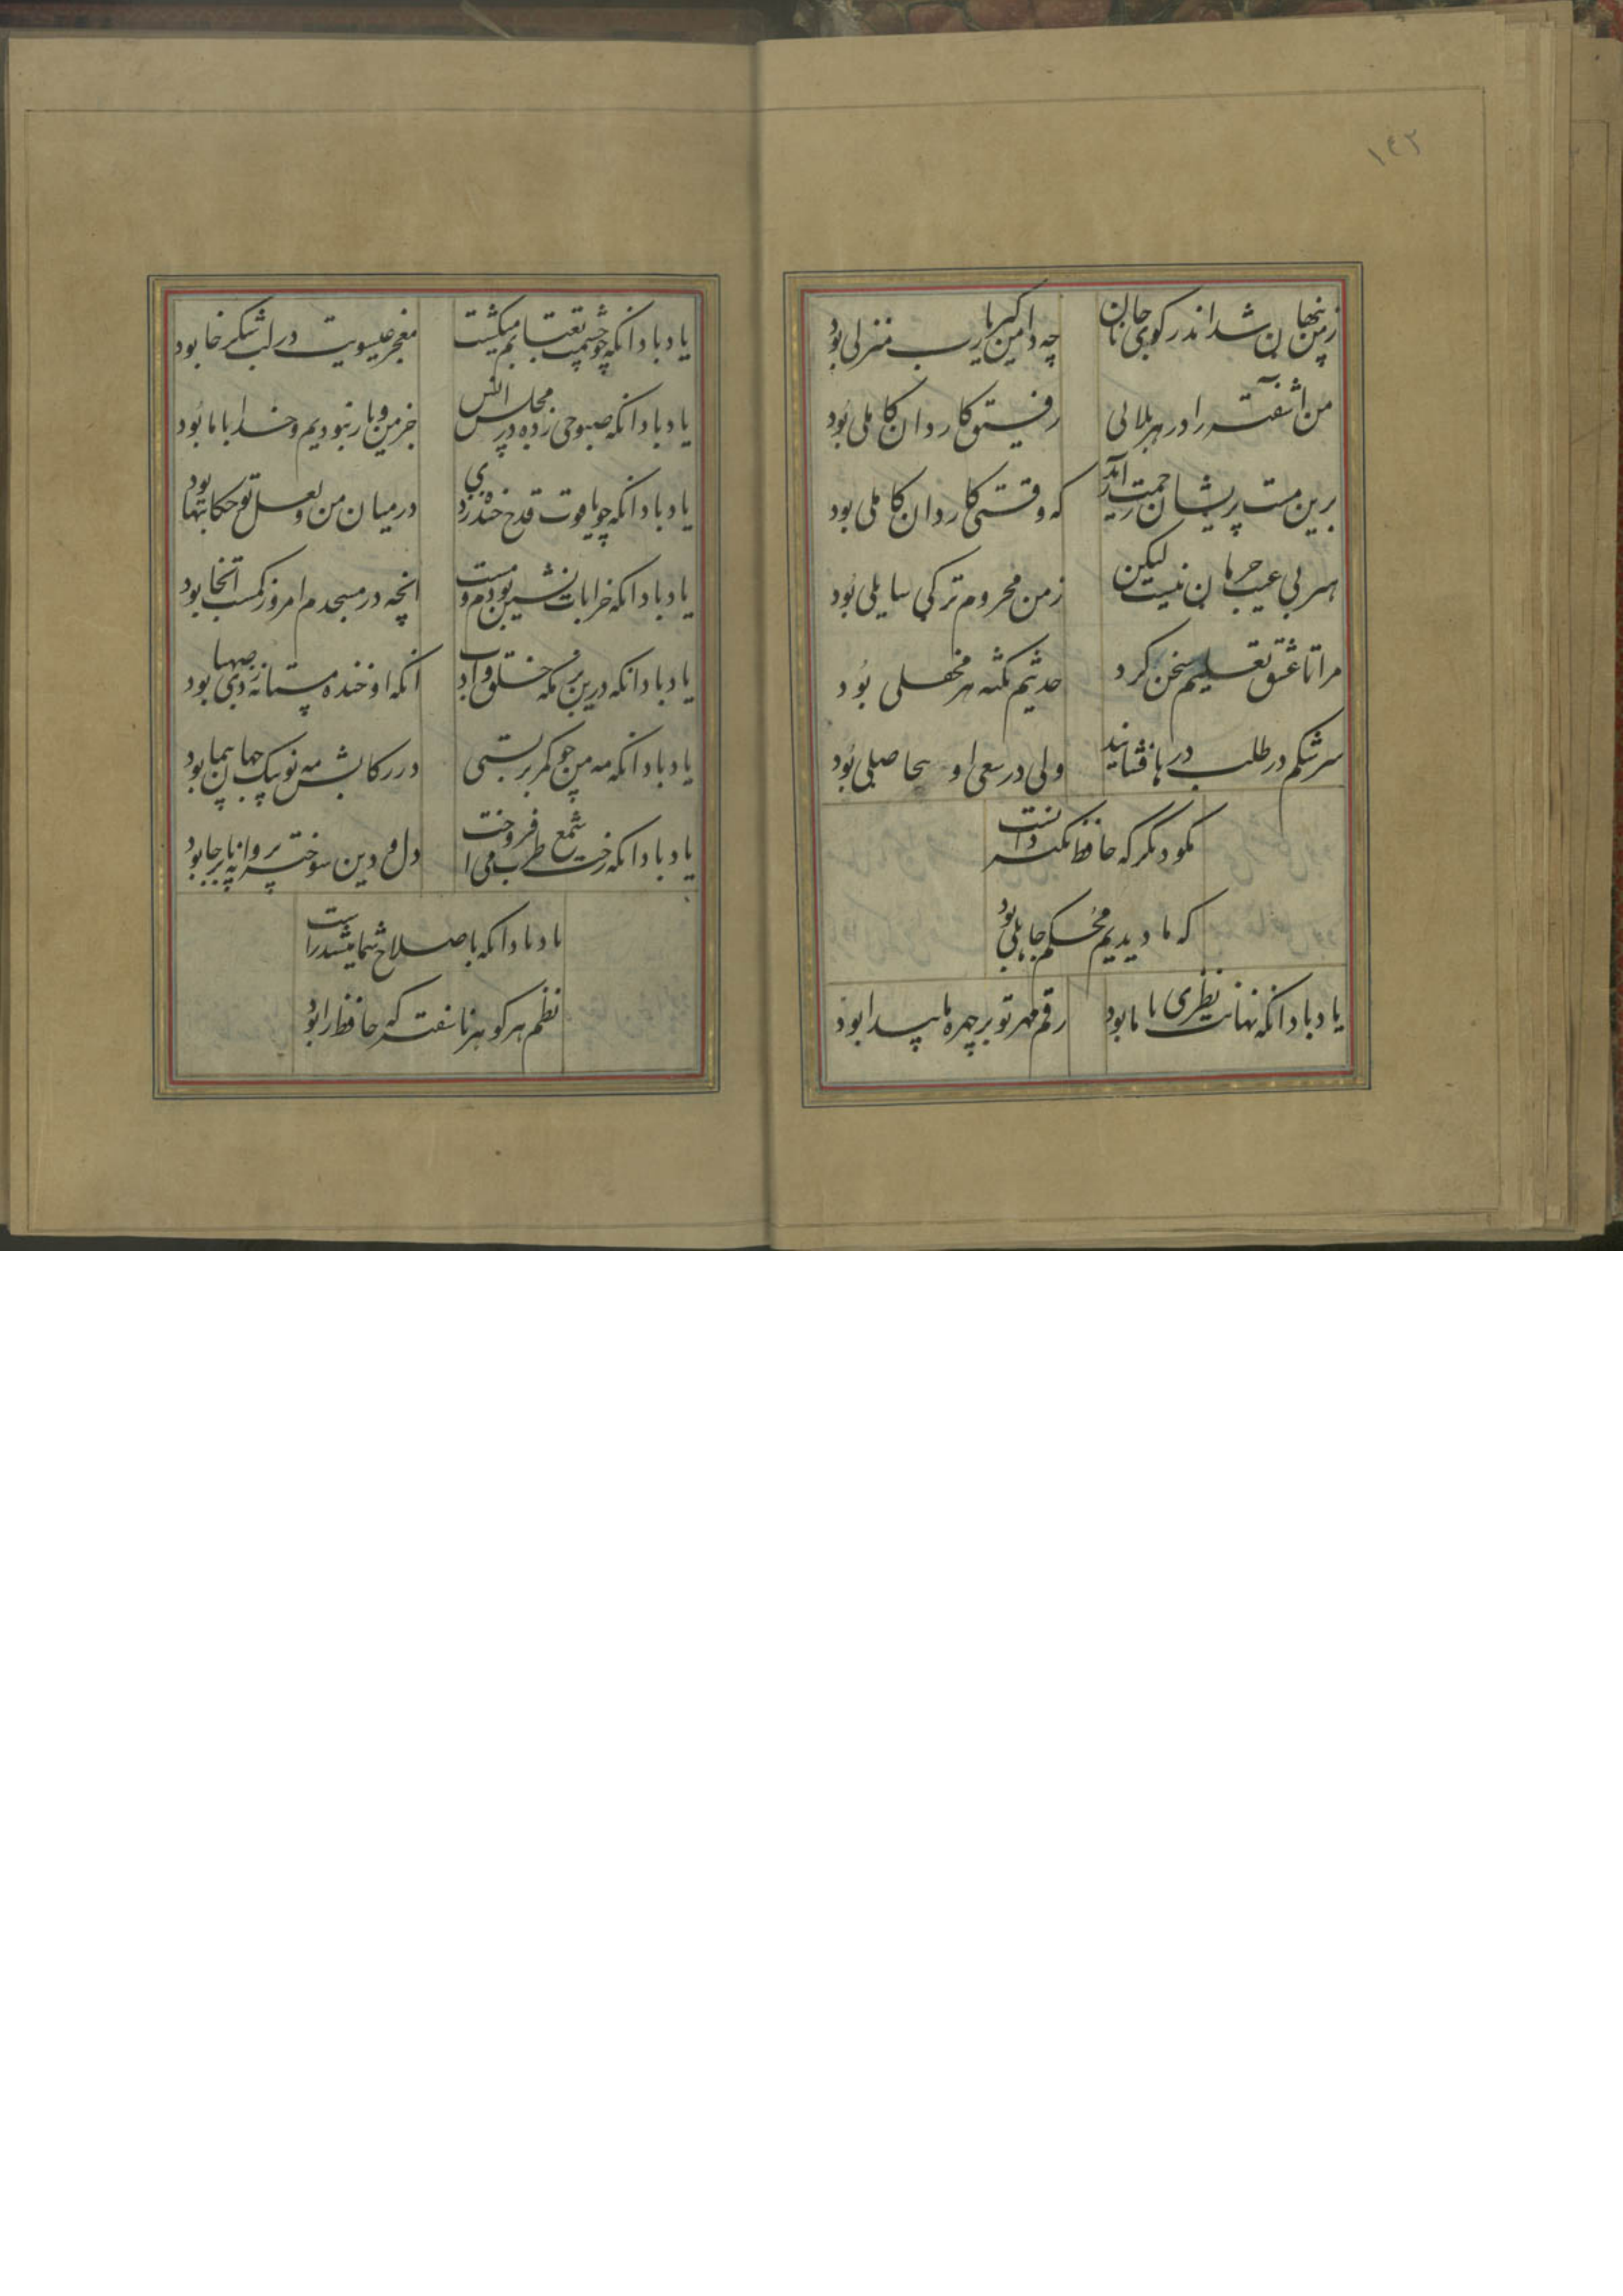 ١٤٢
زمن پنهان شد اندر کوی جانان چه دامن گیر یا رب منزلی بود
من اشفته را در هر بلائی رفیق کاردان کاملی بود
برین مست پریشان رحمت ارید که وقتی کاردان کاملی بود
هنر بی عیب حرمان نیست لیکن زمن محروم تر کی سایلی بود
مرا تا عشق تعلیم سخن کرد حدیثم نکته هر محفلی بود
سرشکم در طلب درها فشانید ولی در سعی او بیحاصلی بود
مگو دیگر که حافظ نکته دانست
که ما دیدیم محکم جاهلی بود
یاد باد انکه نهانت نظری با ما بود رقم مهر تو بر چهره ما پیدا بود
یاد باد انکه چو چشمت بعتابم میکشت معجز عیسویت در لب شکرخا بود
یاد باد انکه صبوحی زده در مجلس انس جز من و یار نبودیم و خدا با ما بود
یاد باد انکه چو یاقوت قدح خنده زدی در میان من و لعل تو حکایتها بود
یاد باد انکه خرابات نشین بودم و مست انچه در مسجدم امروز کمست انجا بود
یاد باد انکه درین بزمگه خلق و ادب انکه او خنده مستانه زدی صهبا بود
یاد باد انکه مه من چو کمر بربستی در رکابش مه نو پیک جهان پیما بود
یاد باد انکه رخت شمع طرب می افروخت دل و دین سوخته پروانه پابرجا بود
یاد باد انکه باصلاح شما میشد راست
نظم هر گوهر ناسفته که حافظ را بود